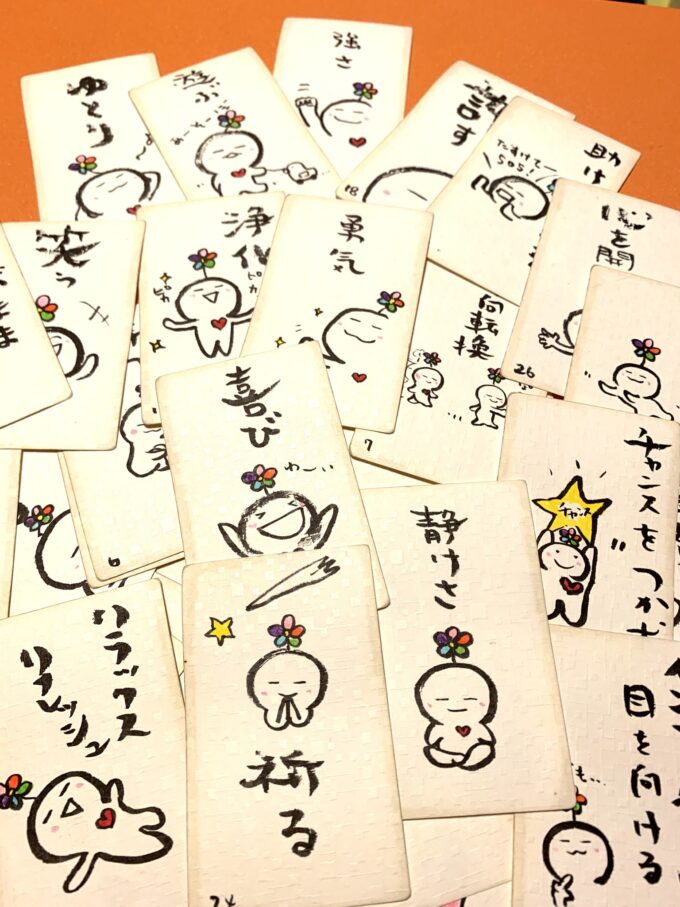 強さ
ゆとり
遊ぶ
許す
助け
たすけてー
SOS!
18
心を開
笑う
浄化
ピカ
ピカ
勇気
向転換
26
まま
喜び
わーい
7
チャンスをつかむ
チャンス
6
静けさ
リラックス
リフレッシュ
祈る
目を向ける
も…
24